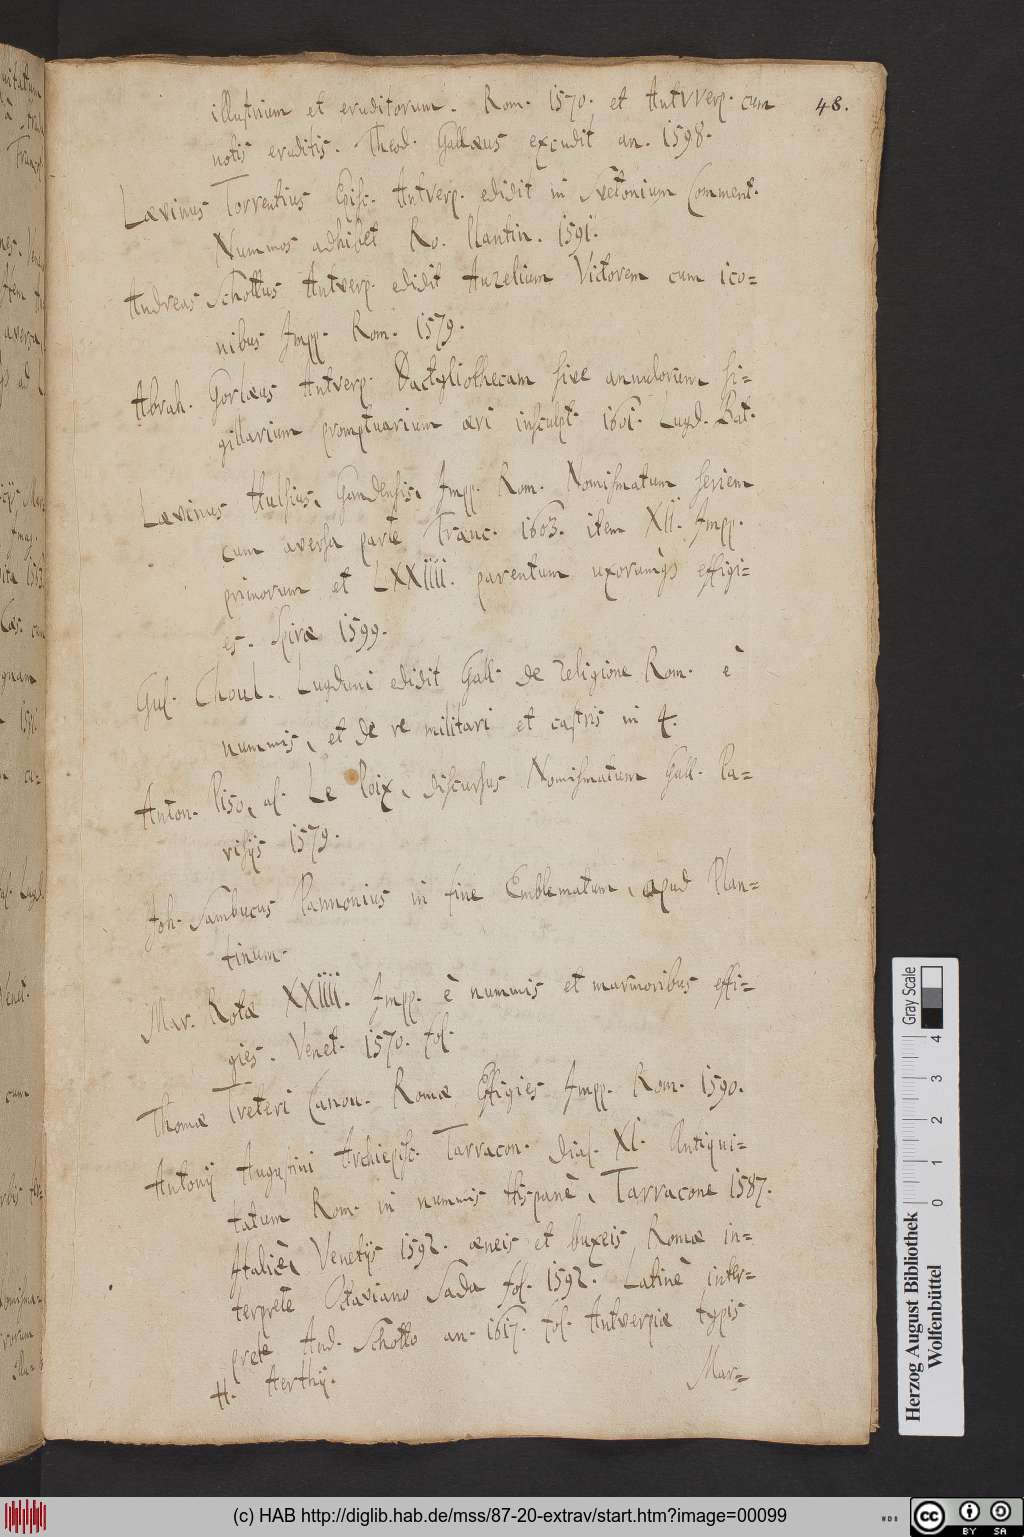 48.
illustrium et eruditorum. Rom. 1570. et Antvverp. cum
notis eruditis. Theod. Gallæus excudit an. 1598.
Lævinus Torrentius Episc. Antverp. edidit in Svetonium Comment.
Nummos adhibet Ro. Plantin. 1591.
Andreas Schottus Antverp. edidit Aurelium Victorem cum ico=
nibus Impp. Rom. 1579.
Abrah. Gorlæus Antverp. Dactyliothecam sive annulorum si=
gillarium promptuarium æri insculpt. 1601. Lugd. Bat.
Lævinus Hulsius, Gandensis, Impp. Rom. Nomismatum seriem
cum aversa parte Franc. 1603. item XII. Impp.
primorum et LXXIIII. parentum uxorumq3 effigi=
es. Spiræ 1599.
Gul. Choul. Lugduni edidit Gall. de religione Rom. è
nummis, et de re militari et castris in 4.
Anton. Piso, al. Le Poix, discursus Nomismatum Gall. Pa=
risijs 1579.
Joh. Sambucus Pannonius in fine Emblematum, apud Plan=
tinum.
Mar. Rotæ XXIIII. Impp. è nummis et marmoribus effi=
gies. Venet. 1570. fol.
Thomæ Treteri Canon. Romæ Effigies Impp. Rom. 1590.
Antonij Augustini Archiepisc. Tarracon. dial. XI. Antiqui=
tatum Rom. in nummis Hispanè, Tarracone 1587.
Italicè, Venetijs 1592. æneis et buxeis Romæ in=
terprete Octaviano Sada fol. 1592. Latinè inter=
prete And. Schotto an. 1617. fol. Antverpiæ typis
H. Aerthij.
Mar=
Gray Scale
4
3
2
1
0
Herzog August Bibliothek
Wolfenbüttel
(c) HAB http://diglib.hab.de/mss/87-20-extrav/start.htm?image=00099
WDB
cc BY SA